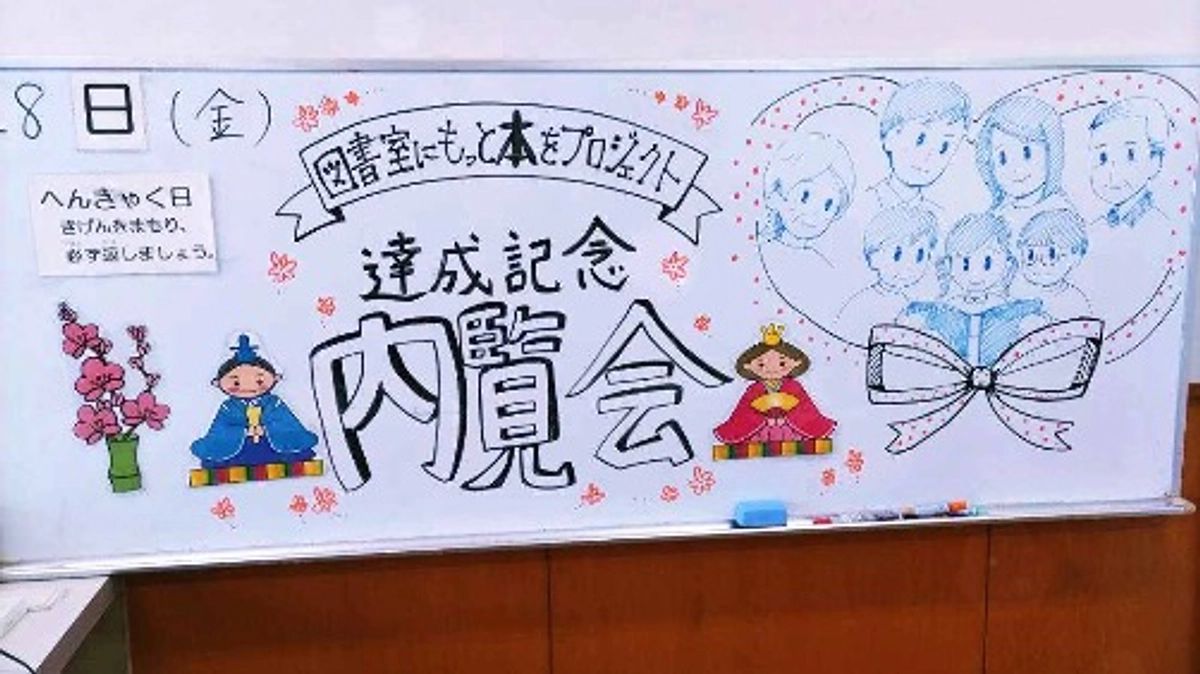 8 日 (金)
へんきゃく日
きげんをまもり、
必ず返しましょう。
図書室にもっと本をプロジェクト
達成記念
内覧会